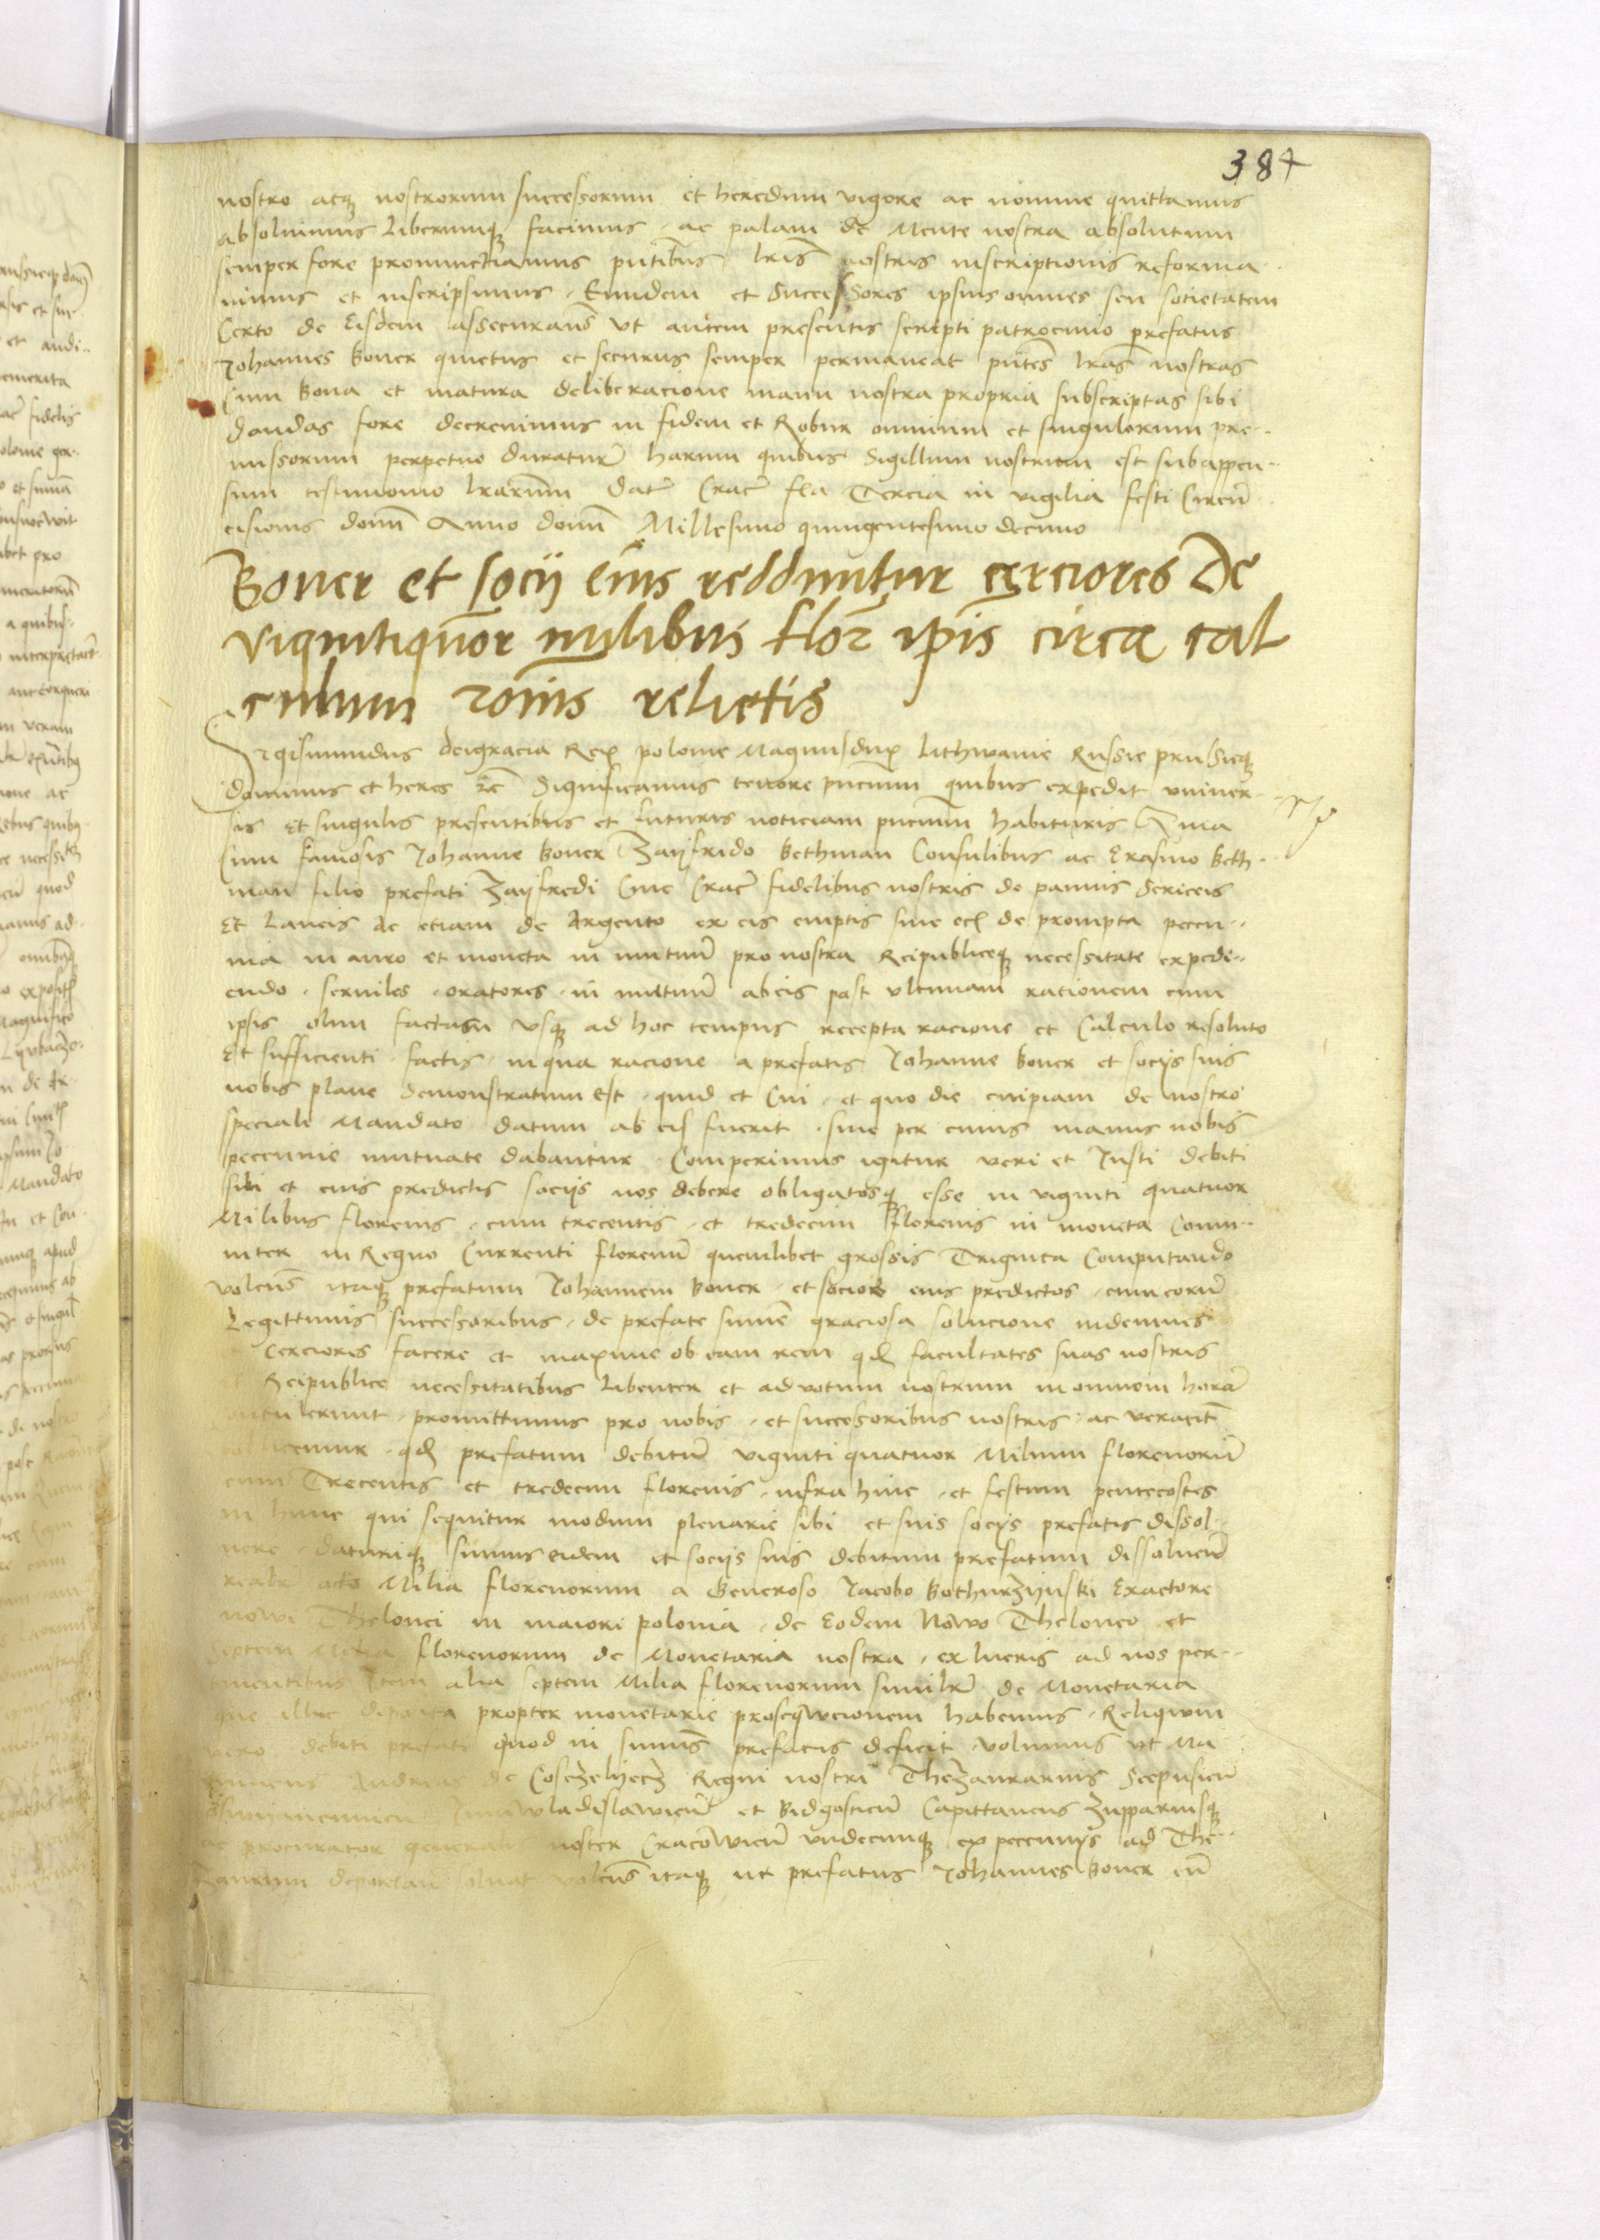 384
nostro atq̨ nostrorum successorum et heredum vigore ac nomine quittamus
absoluimus Liberumq̨ facimus . ac palam de Mente nostra absolutum
semper fore pronunctiamus pn̄tibus lr̄is nostris inscriptionis reforma-
uimus et inscripsimus . Eundem et Successores ipsius omnes seu societatem
Certo de Eisdem assecurans̄ Vt autem presentis scripti patrocinio prefatus
Johannes boner quietus et securus semper permaneat pn̄tes lr̄as nostras
Cum bona et matura deliberacione manu nostra propria subscriptas sibi
dandas fore decreuimus in fidem et Robur omnium et singulorum pre-
missorum perpetuo duratur̄ harum quibus Sigillum nostrum est subappen-
sum testimonio lr̄arum Dat̄ Crac̄ fe̅a Tercia in vigilia festi Circu̅-
cisionis domī Anno domī Millesimo quingentesimo decimo
Boner et socij eius redduntur cerciores De
viginti quatuor milibus flor̄ ip̄is circa cal
culum ro̅nis relictis
Sigismundus dei gracia Rex polonie Magnus dux Lithwanie Russie prussieq̨
dominus et heres zc̄ Significamus tenore pn̄cium quibus expedit vniuer-
sis Et singulis presentibus et futuris noticiam pn̄cium habituris Quia
Cum famosis Johanne boner Zayfrido bethman Consulibus ac Erasmo beth-
man filio prefati Zayfredi Ciue Crac̄ fidelibus nostris de pannis Sericeis
Et Laneis Ac etiam de Argento ex eis emptis siue ecī de prompta pecu-
nia in auro et moneta in mutuū pro nostra Reipubliceq̨ necessitate expedi-
endo . seruiles . oratores . in mutuū ab eis past vltimam rationem cum
ipsis olim factam vsq̨ ad hoc tempus recepta racione et Calculo resoluto
Et sufficienti . factis . in qua racione a prefatis Johanne boner et socijs suis
nobis plane demonstratum est . quid et Cui . et quo die cuipiam de nostro
speciale Mandato datum ab eis fuerit . siue per cuius manus nobis
pecunie mutuate dabantur . Comperimus igitur veri et Justi debiti
sibi et eius predictis socijs nos debere obligatosq̨ esse in viginti quatuor
Milibus florenis . cum trecentis . et tredecim florenis in moneta Comu-
niter in Regno Currenti florenū quemlibet grossis Triginta Computando
volens̄ itaq̨ prefatum Johannem boner . et socios eius predictos . cum eorū
Legittimis successoribus . de prefate sum̄e graciosa solucione indemnes
Cerciores facere et maxime ob eam rem qđ facultates suas nostris
Reipublice necessitatibus Libenter et ad votum nostrum in omnem horā
contulerunt . promittimus pro nobis . et successoribus nostris . ac veracit̄
pollicemur . qđ prefatum debitū viginti quatuor Milium florenorū
cum Trecentis et tredecim florenis . infra hinc . et festum pentecostes
in hunc qui sequitur modum plenarie sibi et suis socijs prefatis dissol-
uere . daturiq̨ sumus eidem et socijs suis debitum prefatum dissoluen̄
Milia florenorum a Generoso Jacobo bothurzijnski Exactore
nowi Thelonei in maiori polonia . de Eodem Nowo Theloneo . et
septem Milia florenorum de Monetaria nostra . ex lucris ad nos per-
tinentibus Item alia septem Milia florenorum similr̄ de Monetaria
que illuc deposita propter monetarie proseqwcionem habemus . Reliqwm
vero debiti prefati quod in summis prefatis deficit volumus vt Ma
gnificus Andreas de Coseczelyecz Regni nostri Thezaurarius Scepusien̄
Juniwladislawien̄ et Bidgostien̄ Capittaneus zuppariusq̨
ac procurator generalis noster Cracowien̄ vndecunq̨ ex pecunijs ad The-
zaurum deportan̄ soluat volens̄ itaq̨ ut prefatus Johannes boner cū